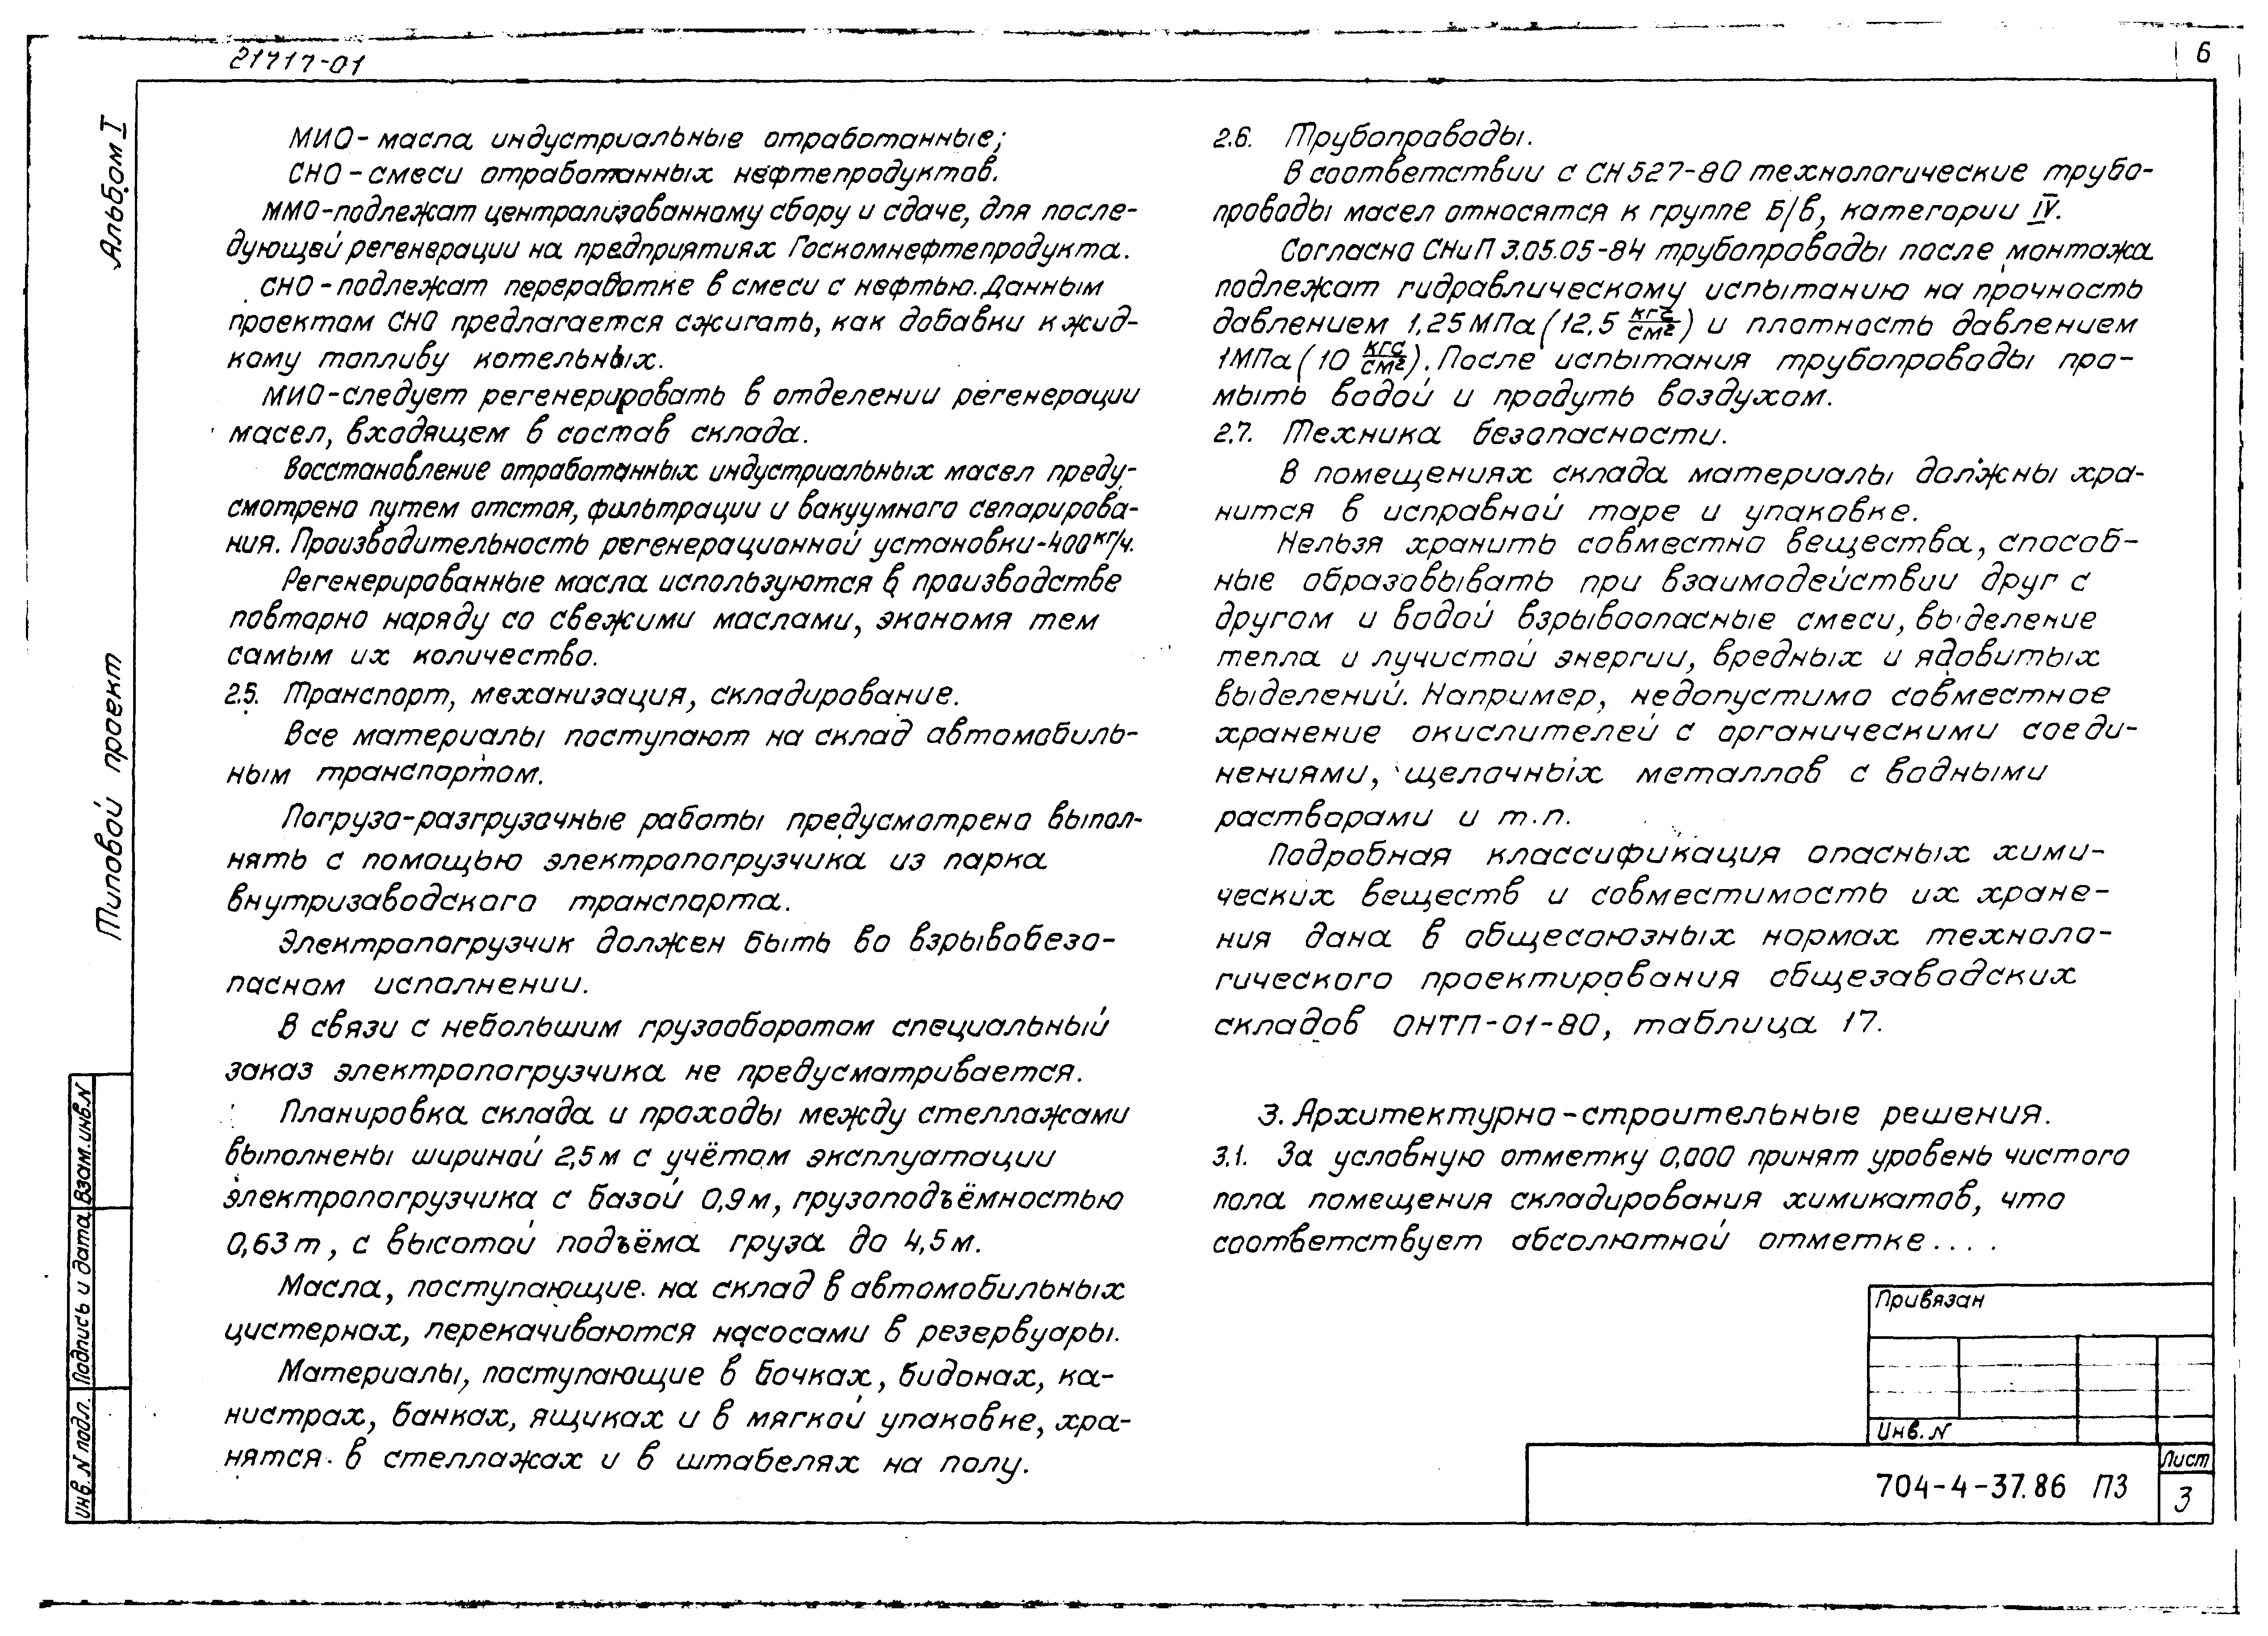 21717-01
6
Альбом I
Типовой проект
МИО- масла индустриальные отработанные;
СНО - смеси отработанных нефтепродуктов.
ММО-подлежат централизованному сбору и сдаче, для после-
дующей регенерации на предприятиях Госкомнефтепродукта.
СНО - подлежат переработке в смеси с нефтью. Данным
проектом СНО предлагается сжигать, как добавки к жид-
кому топливу котельных.
МИО-следует регенерировать в отделении регенерации
масел, входящем в состав склада.
Восстановление отработанных индустриальных масел преду-
смотрено путем отстоя, фильтрации и вакуумного сепарирова-
ния. Производительность регенерационной установки-400 кг/ч.
Регенерированные масла используются в производстве
повторно наряду со свежими маслами, экономя тем
самым их количество.
2.5. Транспорт, механизация, складирование.
Все материалы поступают на склад автомобиль-
ным транспортом.
Погрузо-разгрузочные работы предусмотрено выпол-
нять с помощью электропогрузчика из парка
внутризаводского транспорта.
Электропогрузчик должен быть во взрывобезо-
пасном исполнении.
В связи с небольшим грузооборотом специальный
заказ электропогрузчика не предусматривается.
Планировка склада и проходы между стеллажами
выполнены шириной 2,5 м с учётом эксплуатации
электропогрузчика с базой 0,9 м, грузоподъёмностью
0,63 т, с высотой подъёма груза до 4,5 м.
Масла, поступающие на склад в автомобильных
цистернах, перекачиваются насосами в резервуары.
Материалы, поступающие в бочках, бидонах, ка-
нистрах, банках, ящиках и в мягкой упаковке, хра-
нятся в стеллажах и в штабелях на полу.
2.6. Трубопроводы.
В соответствии с СН 527-80 технологические трубо-
проводы масел относятся к группе Б/в, категории IV.
Согласно СНиП 3.05.05-84 трубопроводы после монтажа
подлежат гидравлическому испытанию на прочность
давлением 1,25 МПа (12,5 кгс/см²) и плотность давлением
1МПа (10 кгс/см²). После испытания трубопроводы про-
мыть водой и продуть воздухом.
2.7. Техника безопасности.
В помещениях склада материалы должны хра-
нится в исправной таре и упаковке.
Нельзя хранить совместно вещества, способ-
ные образовывать при взаимодействии друг с
другом и водой взрывоопасные смеси, выделение
тепла и лучистой энергии, вредных и ядовитых
выделений. Например, недопустимо совместное
хранение окислителей с органическими соеди-
нениями, щелочных металлов с водными
растворами и т.п.
Подробная классификация опасных хими-
ческих веществ и совместимость их хране-
ния дана в общесоюзных нормах техноло-
гического проектирования общезаводских
складов ОНТП-01-80, таблица 17.
3. Архитектурно-строительные решения.
3.1. За условную отметку 0,000 принят уровень чистого
пола помещения складирования химикатов, что
соответствует абсолютной отметке....
Привязан
Инв. N
704-4-37.86 ПЗ
Лист
3
Инв. N подл.
Подпись и дата
Взам. инв. N